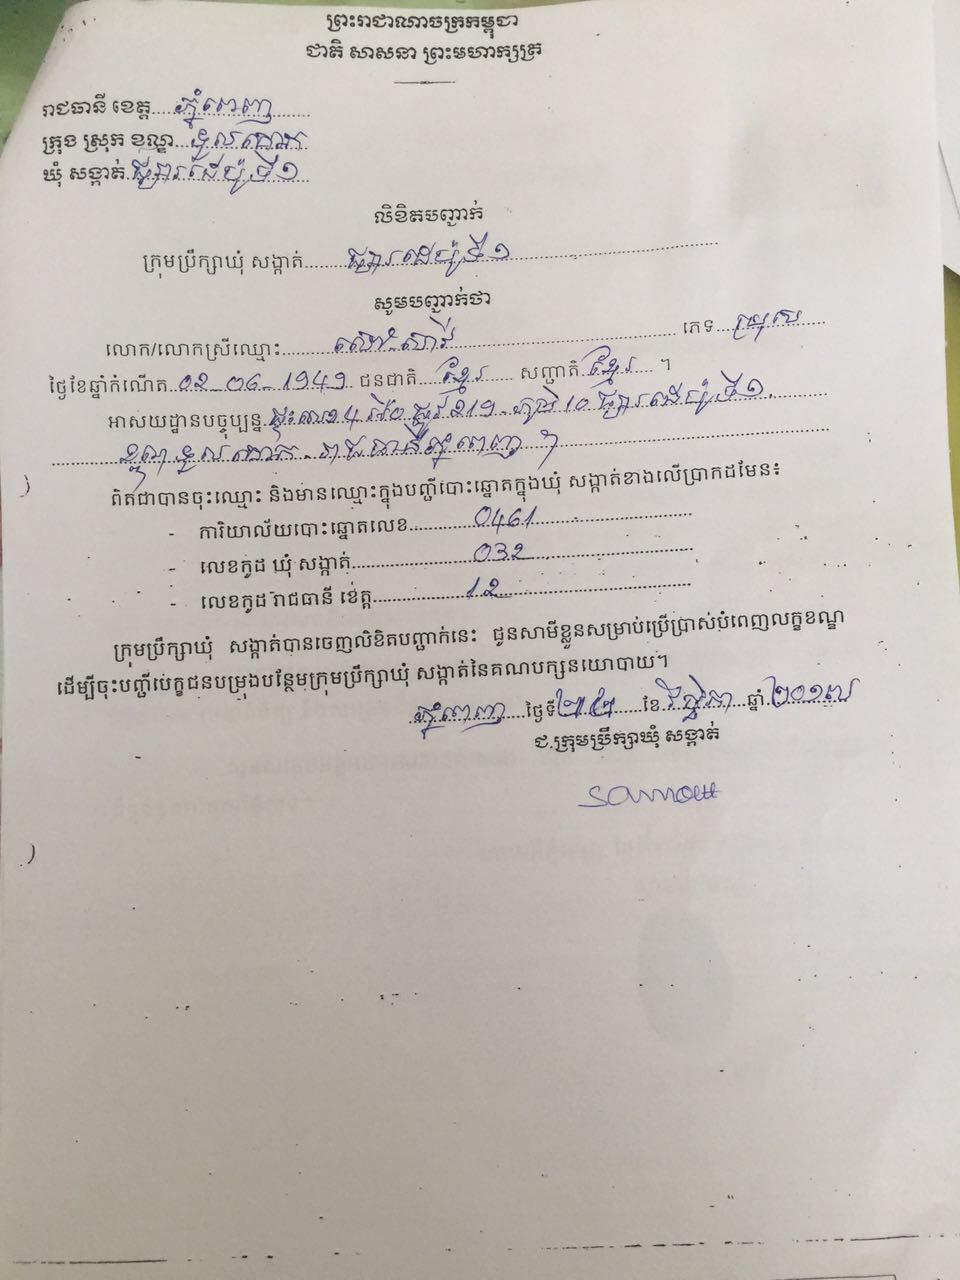 ព្រះរាជាណាចក្រកម្ពុជា
ជាតិ សាសនា ព្រះមហាក្សត្រ
រាជធានី ខេត្ត ភ្នំពេញ
ក្រុង ស្រុក ខណ្ឌ ទួលគោក
ឃុំ សង្កាត់ ផ្សារដេប៉ូទី១
លិខិតបញ្ជាក់
ក្រុមប្រឹក្សាឃុំ សង្កាត់ ផ្សារដេប៉ូទី១
សូមបញ្ជាក់ថា
លោក/លោកស្រីឈ្មោះ ភេទ ប្រុស
ថ្ងៃខែឆ្នាំកំណើត 02-06-1949 ជនជាតិ ខ្មែរ សញ្ជាតិ ខ្មែរ ។
អាសយដ្ឋានបច្ចុប្បន្ន ផ្ទះលេខ ផ្លូវ 219 ភូមិ 10 ផ្សារដេប៉ូទី១
ខណ្ឌទួលគោក រាជធានីភ្នំពេញ ។
ពិតជាបានចុះឈ្មោះ និងមានឈ្មោះក្នុងបញ្ជីបោះឆ្នោតក្នុងឃុំ សង្កាត់ខាងលើប្រាកដមែន៖
- ការិយាល័យបោះឆ្នោតលេខ 0461
- លេខកូដ ឃុំ សង្កាត់ 032
- លេខកូដ រាជធានី ខេត្ត 12
ក្រុមប្រឹក្សាឃុំ សង្កាត់បានចេញលិខិតបញ្ជាក់នេះ ជូនសាមីខ្លួនសម្រាប់ប្រើប្រាស់បំពេញលក្ខខណ្ឌ
ដើម្បីចុះបញ្ជីបេក្ខជនបម្រុងបន្ថែមក្រុមប្រឹក្សាឃុំ សង្កាត់នៃគណបក្សនយោបាយ។
ភ្នំពេញ ថ្ងៃទី ២៤ ខែ វិច្ឆិកា ឆ្នាំ ២០១៧
ជ.ក្រុមប្រឹក្សាឃុំ សង្កាត់